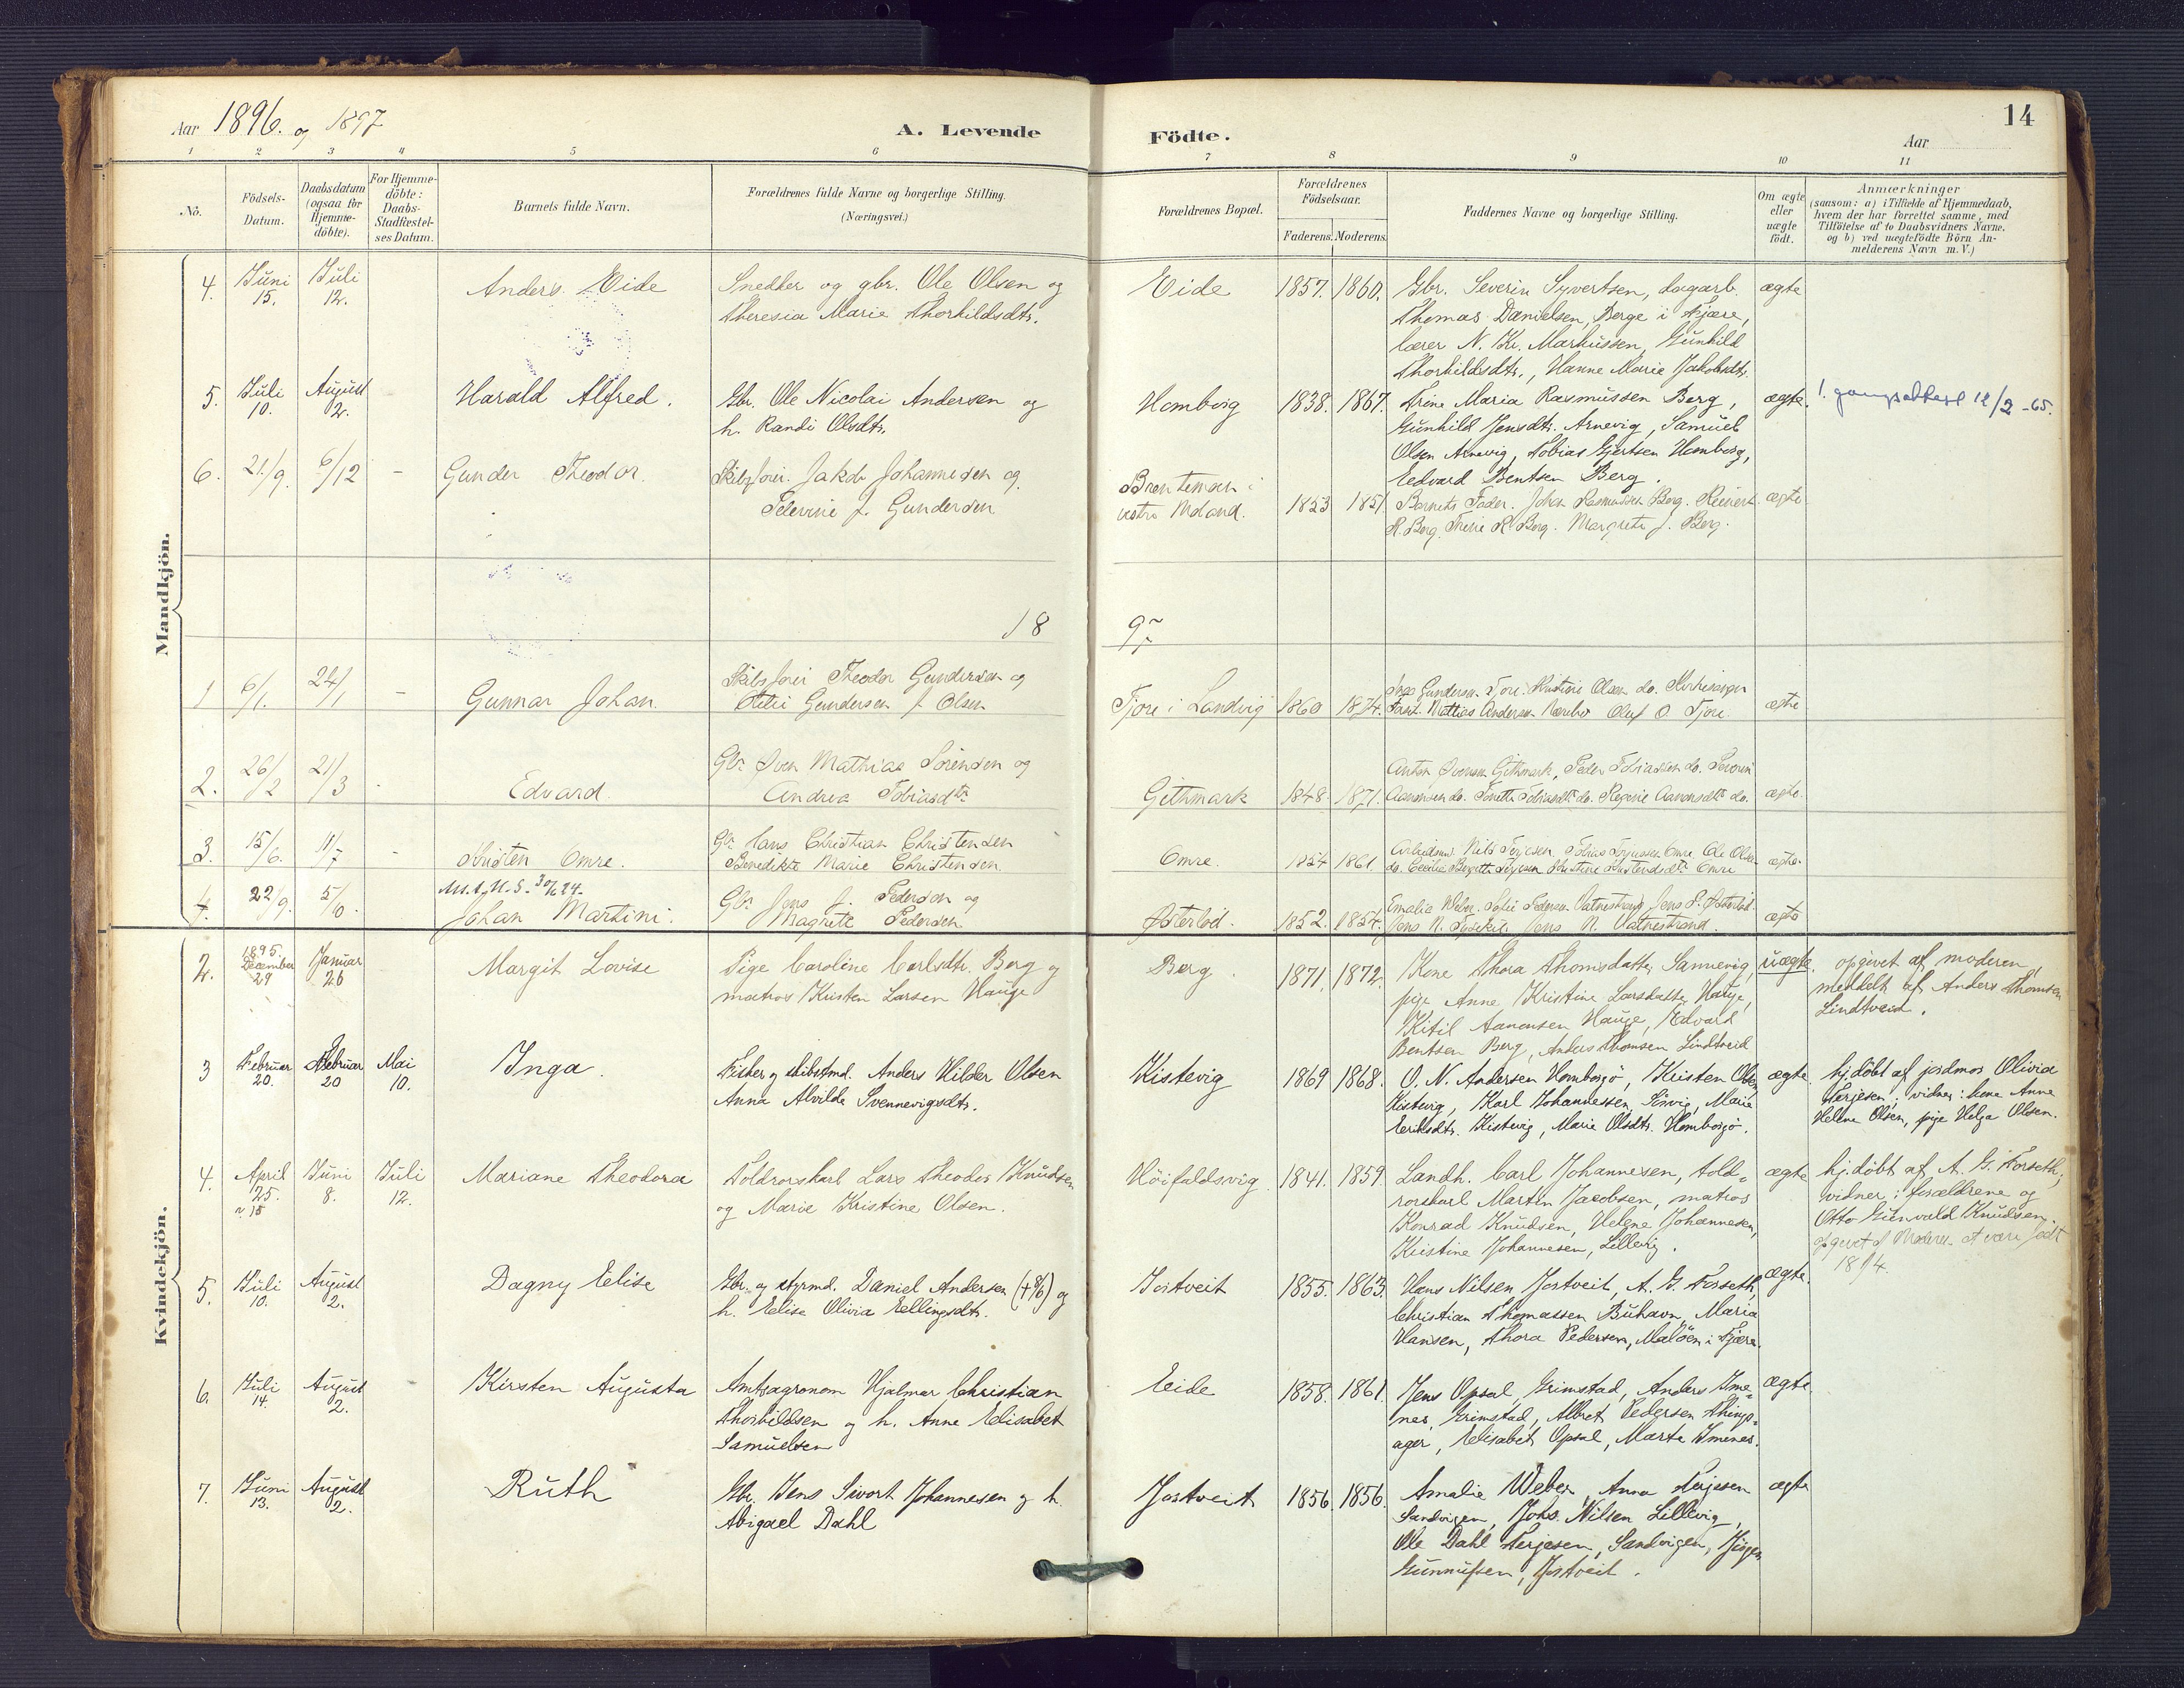 Aar 1896. og 1897
A. Levende
Födte.
14
Aar
1 2 3 4 5 6 7 8 9 10 11
No.
Födsels-
Datum.
Daabsdatum
(ogsaa for
Hjemme-
döbte).
For Hjemme-
döbte:
Daabs-
Stadfæstel-
ses Datum.
Barnets fulde Navn.
Forældrenes fulde Navne og borgerlige Stilling.
(Næringsvei.)
Forældrenes Bopæl.
Forældrenes
Födselsaar.
Faderens. Moderens.
Faddernes Navne og borgerlige Stilling.
Om ægte
eller
uægte
födt.
Anmærkninger
(saasom: a) i Tilfælde af Hjemmedaab,
hvem der har forrettet samme, med
Tilföielse af to Daabsvidners Navne.
og b) ved uægtefödte Börn An-
melderens Navn m.V.)
Mandkjön.
4. Juni 15. Juli 12. Anders Eide
Snedker og gbr. Ole Olsen og
Theresia Marie Thorkildsdtr.
Eide 1857. 1860.
Gbr. Severin Syvertsen, dagarb.
Thomas Danielsen, Berge i Fjære,
lærer N. Kr. Markussen, Gunhild
Thorkildsdtr., Hanne Marie Jakobsdtr.
ægte
5. Juli 10. August 2. - Harald Alfred.
Gbr. Ole Nicolai Andersen og
h. Randi Olsdtr.
Homborg 1838. 1867.
Trine Maria Rasmussen Berg,
Gunhild Jensdtr. Arnevig, Samuel
Olsen Arnevig, Tobias Gjertsen Homborg,
Edvard Bentsen Berg.
ægte.
1. gangsattest 12/2 -65.
6. 21/9. 6/12 - Gunder Theodor.
Skibsfører. Jakob Johannesen og
Televine f. Gundersen
vestre Moland. 1853 1851.
Barnets Fader. Johan Rasmussen Berg. Reinert
H. Berg. Trine R. Berg. Margrete J. Berg.
ægte
18
9
1 6/1. 24/1 - Gunnar Johan.
Skibsfører Theodor Gundersen og
Gundersen f. Olsen
Tjore i Landvig 1860 1874.
Gundersen Tjore. Kristine Olsen do. Kirkesanger
Mattias Andersen Oluf O. Tjore.
ægte
2. 26/2 21/3 - Edvard.
Gbr. Sven Mathias Sörensen og
Andrea Tobiasdtr
Githmark 1848 1871.
Anton Svensen Githmark, Peder Tobiassen do. Severin
Aanonsen do. Tonette Tobiasdtr. do. Regine Aanonsdtr do.
ægte.
3. 15/6. 11/7 - Kristen Omre.
Gbr Hans Christian Christensen
Benedikte Marie Christensen.
Omre. 1854 1861.
Arbeidsm. Nils Terjesen, Tobias Terjussen Omre, Ole Olsen
do. Cecilie Birgitte Terjesen Kristine Kristensdtr Omre
ægte.
4. 22/9. 5/10. Johan Martini.
Gbr Jens J. Pedersen og
Magrete Pedersen
Østerbö. 1852. 1854.
Emalie Weber. Sofie Pedersen Vatnestrand, Jens P. Østerbö.
Jens N. Jens N. Vatnestrand.
ægte
Kvindekjön.
2. 1895. December 29 Januar 26 Margit Lovise
Pige Caroline Carlsdtr. Berg og
matros Kristen Larsen Hauge
Berg. 1871. 1872.
Kone Thora Thomsdatter Sannevig,
pige Anne Kristine Larsdatter Hauge,
Kitil Aanonsen Hauge, Edvard
Bentsen Berg, Anders Thomsen Lindtveid
uægte.
opgivet af moderen,
meddelt af Anders Thomsen
Lindtveid.
3 Februar 20. Februar 20 Mai 10. Inga.
Fisker og skibstmd. Anders Hilder Olsen
Anna Alvilde Svennevigsdtr.
Kistevig 1869 1868.
O. N. Andersen Homborsjö, Kristen Olsen
Kistevig, Karl Johannessen, Marie
Eriksdtr. Kistevig, Marie Olsdtr. Homborsjö.
ægte.
hj.döbt af jordmor Olivia
Terjesen; vidner: kone Anne
Helene Olsen, pige Helga Olsen.
4. April 25. Juni 8. Juli 12. Mariane Theodora
Toldrorskarl Lars Theodor Knudsen
og Marie Kristine Olsen.
Höifaldsvig. 1841. 1859.
Landh. Carl Johannesen, told-
rorskarl Martin Jacobsen, matros
Konrad Knudsen, Helene Johannesen,
Kristine Johannesen, Lillevig.
ægte
hj.döbt af A. G. Forseth;
vidner: forældrene og
Otto Gunvald Knudsen.
opgivet af Moderen at være født
18/4.
5. Juli 10. August 2. Dagny Elise
Gbr. og styrmd. Daniel Andersen (+8/6) og
h. Elise Olivia Ellingsdtr.
Jortveit 1855. 1863.
Hans Nilsen Jortveit, A. G. Forseth,
Christian Thomassen Buhavn, Maria
Hansen, Thora Pedersen, Malöen i Fjære.
ægte.
6. Juli 14. August 2. Kirsten Augusta
Amtsagronom Hjalmar Christian
Thorkildsen og h. Anne Elisabet
Samuelsen
Eide 1858. 1861.
Jens Opsal, Grimstad, Anders Ime-
nes, Grimstad, Albret Pedersen Things-
ager, Elisabet Opsal, Marte Imenes.
ægte.
7. Juni 13. August 2. Ruth
Gbr. Jens Sivort Johannesen og h.
Abigael Dahl
Jortveit 1856. 1856.
Amalie Weber, Anna Terjesen
Sandvigen, Johs. Nilsen Lillevig,
Ole Dahl Terjesen, Sandvigen, Jörgen
Gunnufsen, Jortveit.
ægte